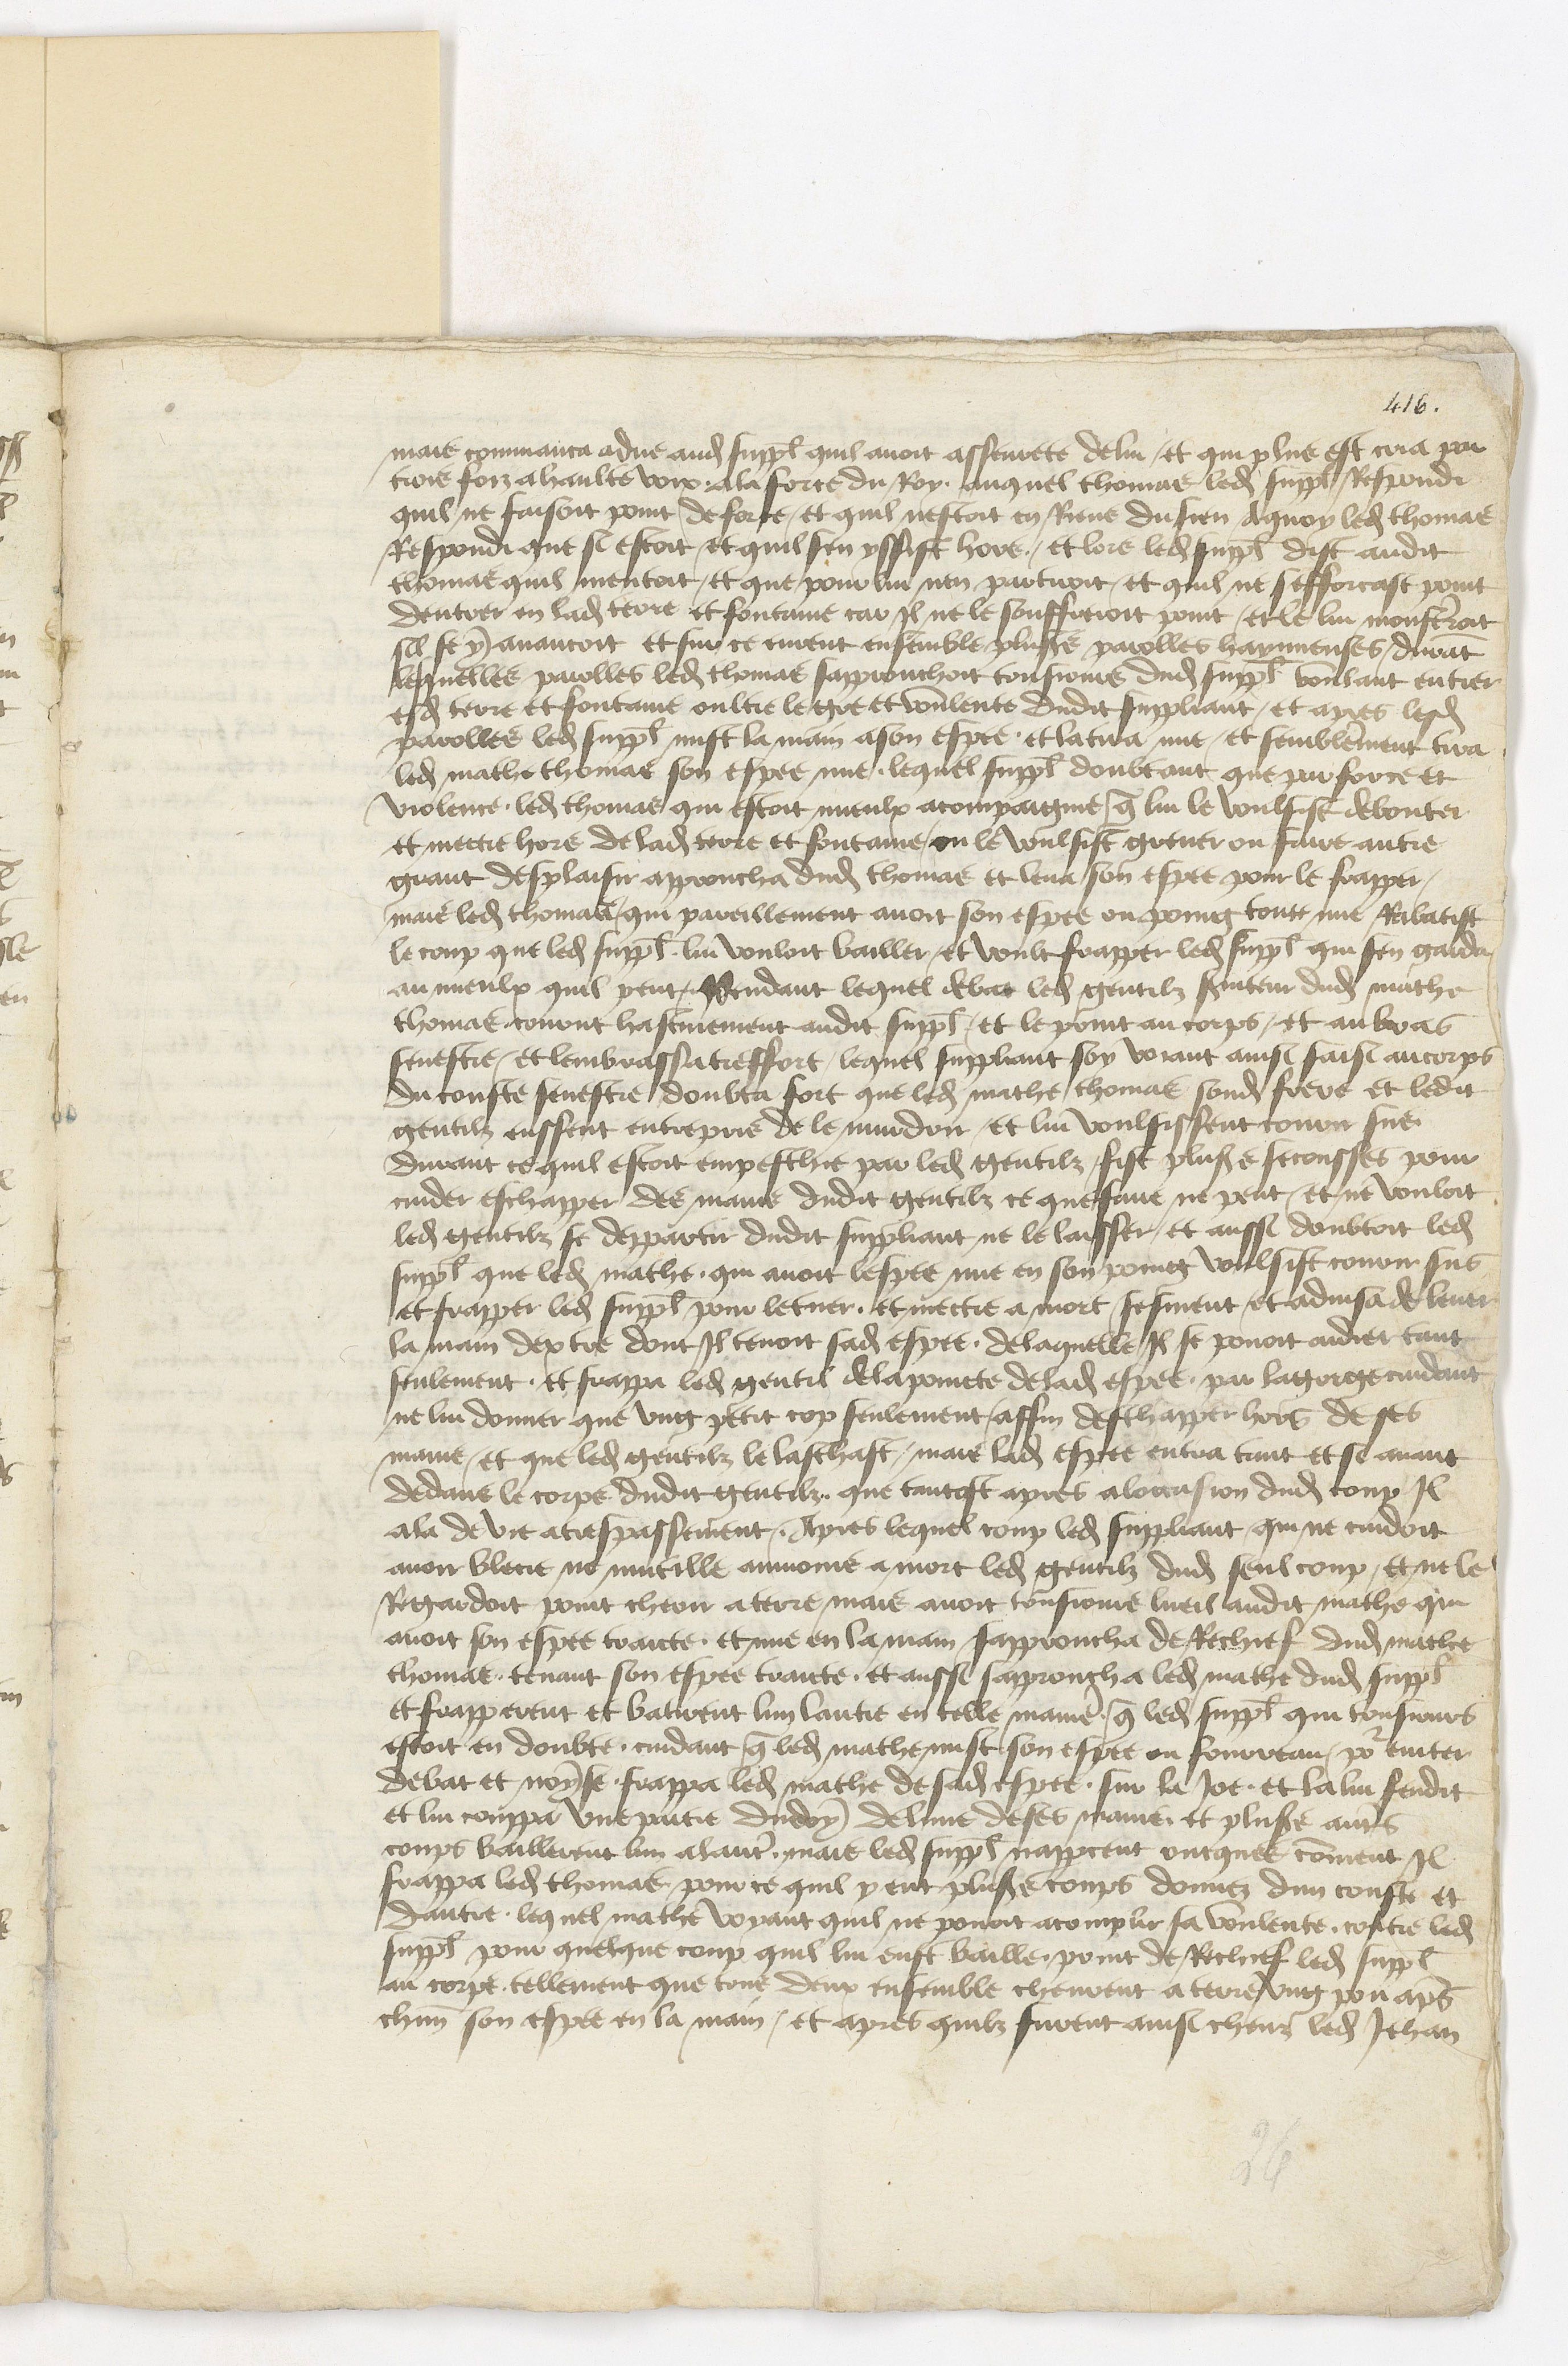 416.
mais commanca a dire aud suppl quil auoit asseurete de lui / et qui plus est cria par
trois foiz a haulte voix . a la force du Roy . auquel thomas led suppl Respondi
quil ne faisoit point de force / et quil nestoit en Riens du sien Aquoy led thomas
Respondi que si estoit / et quil sen yssist hors . / et lors led suppl dist audit
thomas quil mentoit / et que pour lui nen partiroit / et quil ne sefforcast point
dentrer en lad terre et fontaine car Il ne le souffreroit point / et le lui monstreroit
sil se y auancoit et sur ce eurent ensemble pluss parolles haynneuses / durat
lesquelles parolles led thomas sapprouchoit tousiours dud suppl voulant entrer
esd terre et fontaine oultre le gre et voulente dudit suppliant / et apres lesd
parolles led suppl mist la main a son espee . et la tira nue / et semblement tira
led mathe thomas son espee nue . lequel suppl doubtant que par force et
violence . led thomas qui estoit mieulx acompaigne q lui le voulsist debouter
et mectre hors de lad terre et fontaine / ou le voulsist greuer ou faire autre
grant desplaisir approucha dud thomas et leua son espee pour le frapper /
mais led thomas / qui pareillement auoit son espee ou poing toute nue Rabatist
le coup que led suppl . lui vouloit bailler / et voult frapper led suppl qui sen garda
au mieulx quil peut . Pendant lequel debat led gentilz seruiteur dud mathe
thomas . courut hastiuement audit suppl / et le print au corps / et au bras
senestre / et lembrassa tresfort / lequel suppliant soy voiant ainsi saisi au corps
du couste senestre doubta fort que led mathe thomas sond frere et ledit
gentilz eussent entrepris de le murdrir / et lui voulsissent courir sus
durant ce quil estoit empeschie par led gentilz / fist pluss secousses pour
cuider eschapper des mains dudit gentilz ce que faire ne peut / et ne vouloit
led gentilz se deppartir dudit suppliant ne le laisser / et aussi doubtoit led
suppl que led mathe . qui auoit lespee nue en son poing voulsist courir sus
et frapper led suppl pour le tuer . et mectre a mort / et aduisa de leuer
la main dextre dont Il tenoit sad espee . de laquelle Il se pouoit aidier tant
seulement . et frappa led gentil de la pointe de lad espee . par la gorge cuidant
ne lui donner que vng petit cop seulement / affin deschapper hors de ses
mains / et que led gentilz le laschast / mais lad espee entra tant et si auant
dedans le corps dudit gentilz . que tantost apres a loccasion dud coup Il
ala de vie a trespassement . Apres lequel coup led suppliant / qui ne cuidoit
auoir blecie ne mutille aumoins a mort led gentilz dud seul coup / et ne le
Regardoit point cheoir a terre mais auoit tousiours lueil audit mathe qui
auoit son espee traicte . et nue en la main sapproucha de Rechief dud mathe
thomas . tenant son espee traicte . et aussi sapproucha led mathe dud suppl
et frapperent et batirent lun lautre en telle manie . q led suppl qui tousiours
estoit en doubte . cuidant q led mathe mist son espee ou fourreau / po euiter
debat et noyse . frappa led mathe de sad espee . sur la Joe . et la lui fendit
et lui couppa vne partie du doy de lune de ses mains . et pluss auts
coups baillerent lun a laut . mais led suppl napperceut oncques coment Il
frappa led thomas . pour ce quil y eut pluss coups donnez dun couste et
dautre . lequel mathe voyant quil ne pouoit acomplir sa voulente . contre led
suppl pour quelque coup quil lui eust baille . print de Rechief led suppl
au corps . tellement que tous deux ensemble cheurent a terre vng pou aps
chun son espee en la main / et apres quilz furent ainsi cheuz led Jehan